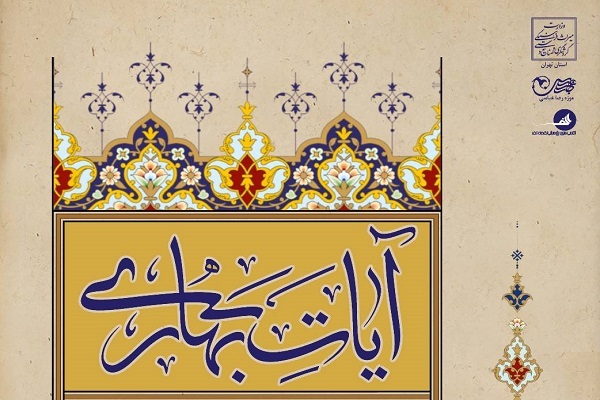 وزارت
میراث فرهنگی
گردشگری و صنایع دستی
استان تهران
موزه رضا عباسی
آیاتِ بهاری